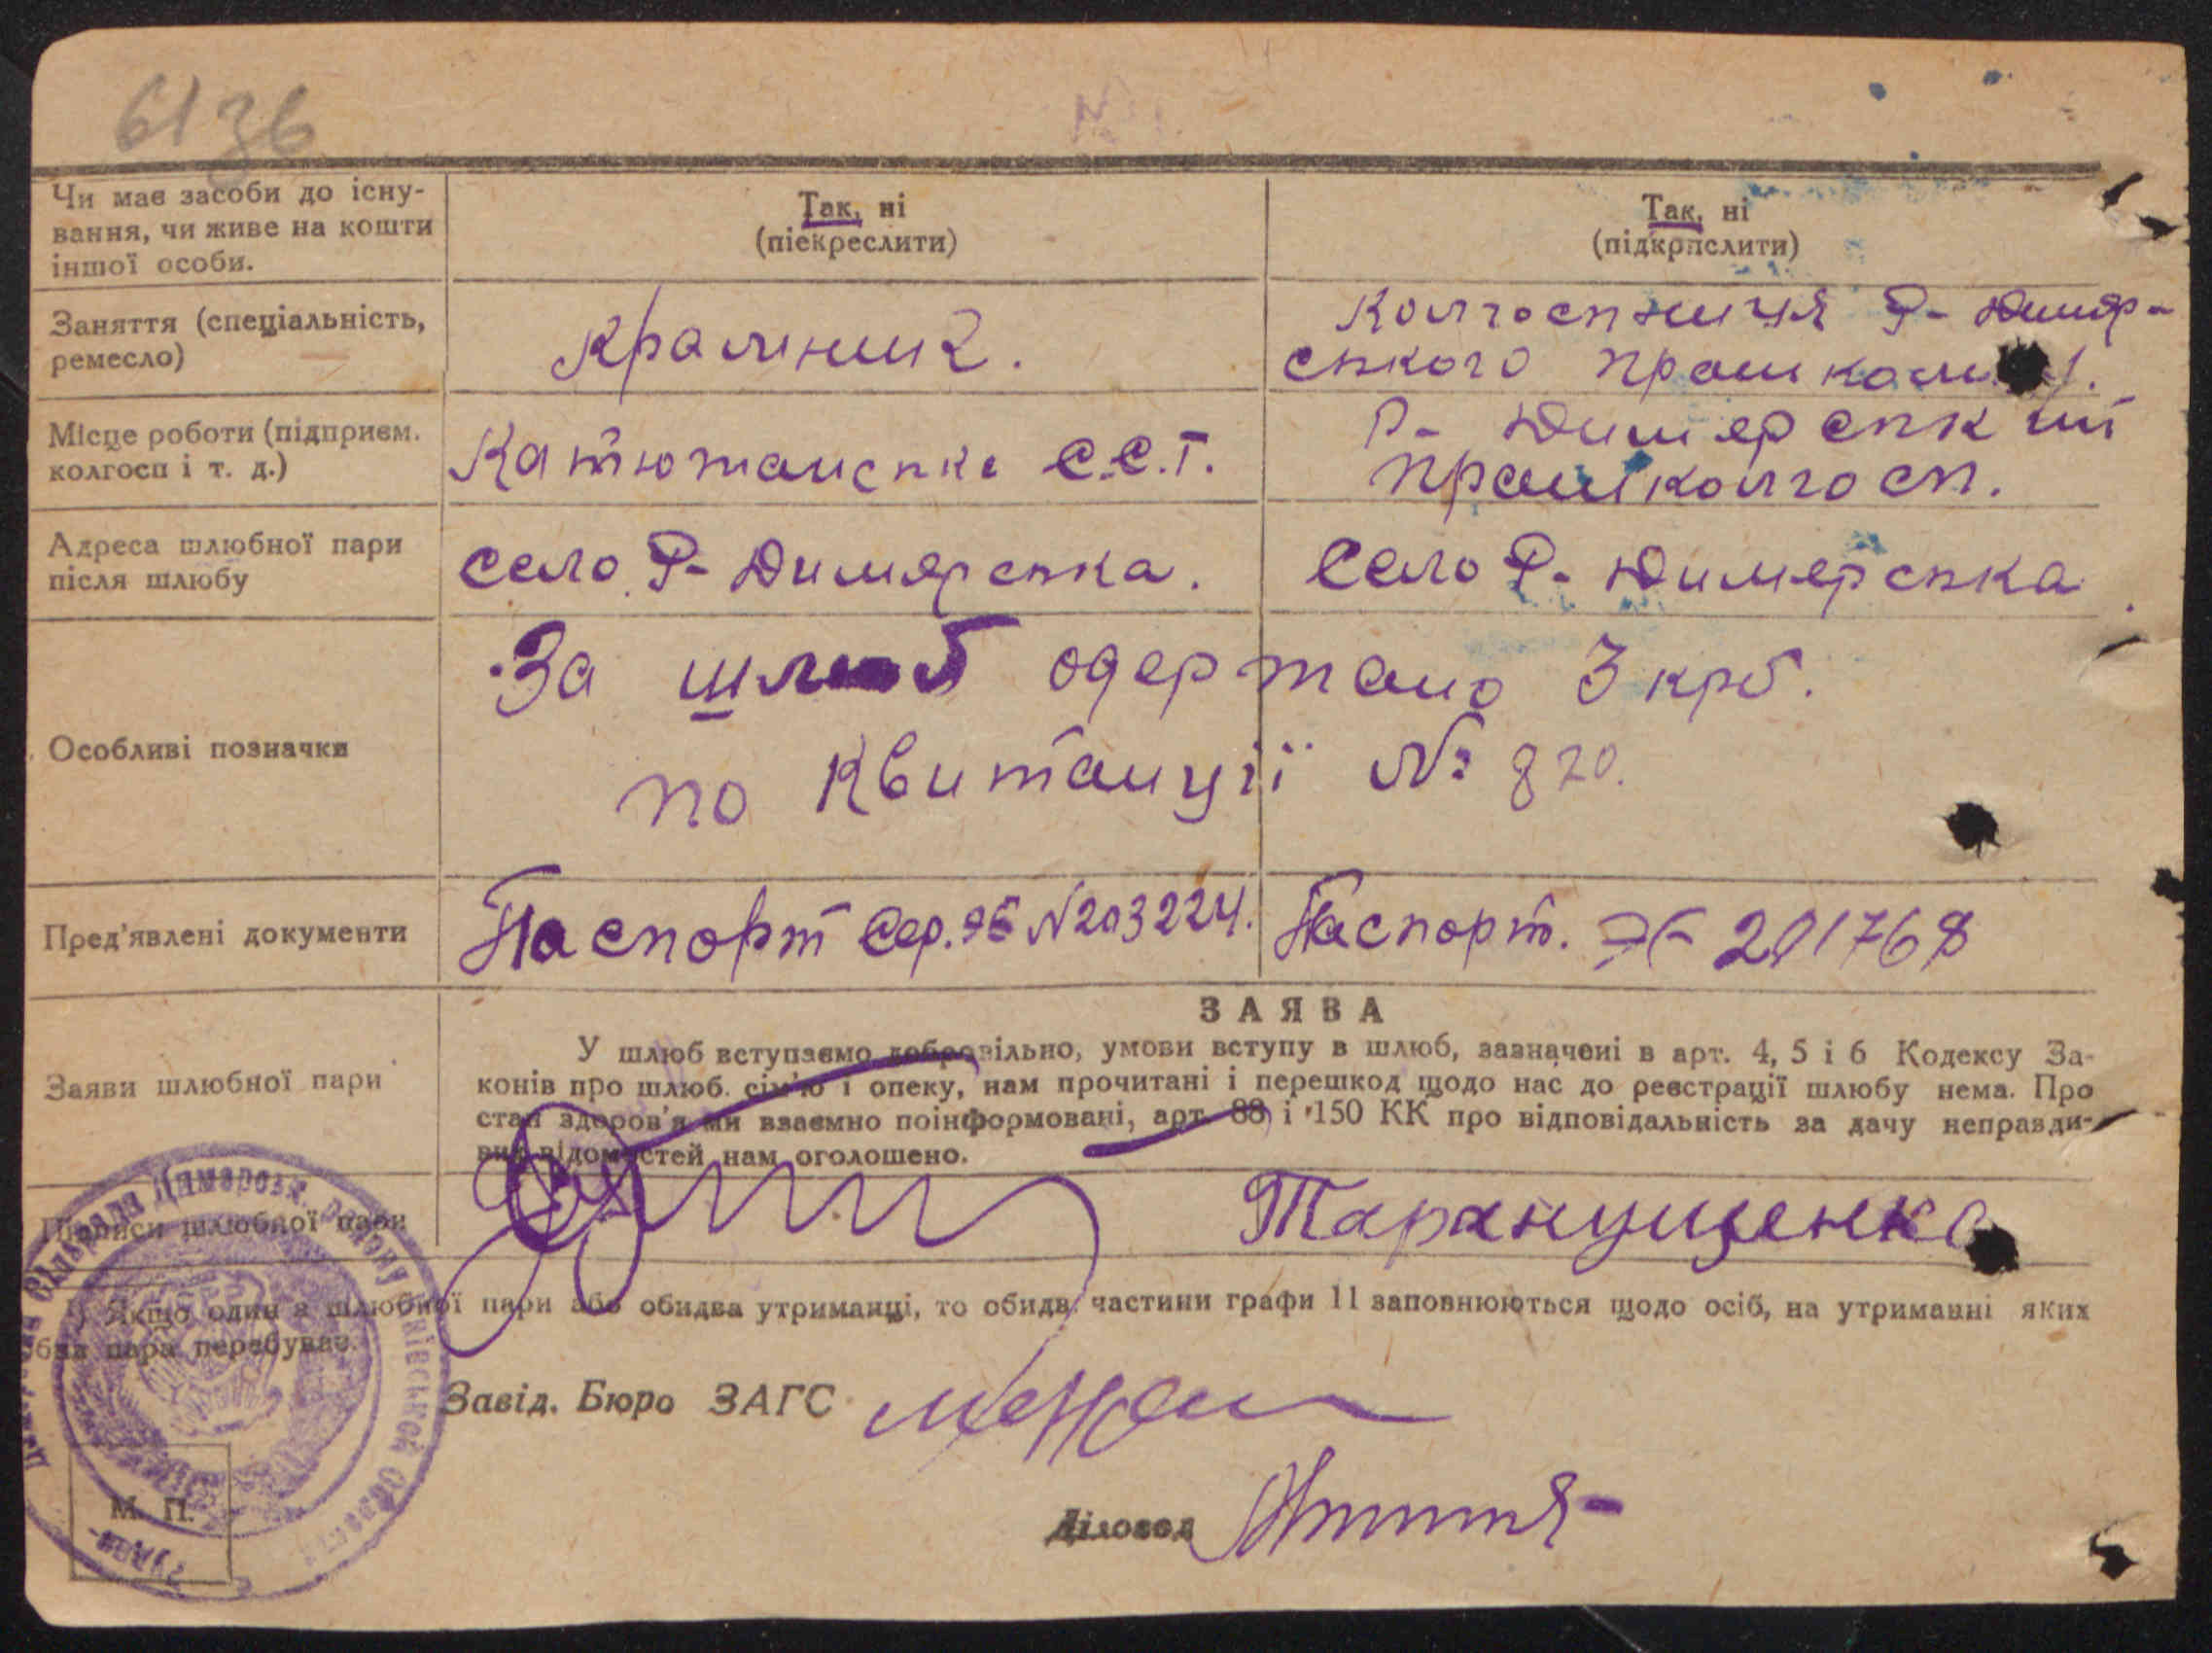 6136
№
Чи має засоби до існу-
вання, чи живе на кошти
іншої особи.
Так, ні
(піекреслити)
Так, ні
(підкрпслити)
Заняття (спеціальність,
ремесло)
Крамник.
Колгоспниця Р- Димер-
ського
Місце роботи (підприєм.
колгосп і т. д.)
С.С.Т.
Р- Димерський
промколгосп.
Адреса шлюбної пари
після шлюбу
село Р- Димерська.
село Р- Димерська
Особливі позначки
За шлюб одержано 3 крб.
по квитанції № 820.
Пред'явлені документи
Паспорт Сер. №203224.
Паспорт. 201768
ЗАЯВА
Заяви шлюбної пари
У шлюб вступаємо добровільно, умови вступу в шлюб, зазначені в арт. 4, 5 і 6 Кодексу За-
конів про шлюб. сім'ю і опеку, нам прочитані і перешкод щодо нас до реєстрації шлюбу нема. Про
стан здоров'я ми взаємно поінформовані, арт. 88 і 150 КК про відповідальність за дачу неправди-
вих відомостей нам оголошено.
Підписи шлюбної пари
Таранущенко
Якщо один з шлюбної пари або обидва утриманці, то обидві частини графи 11 заповнюються щодо осіб, на утриманні яких
пара перебуває.
Завід. Бюро ЗАГС
Діловод
М. П.